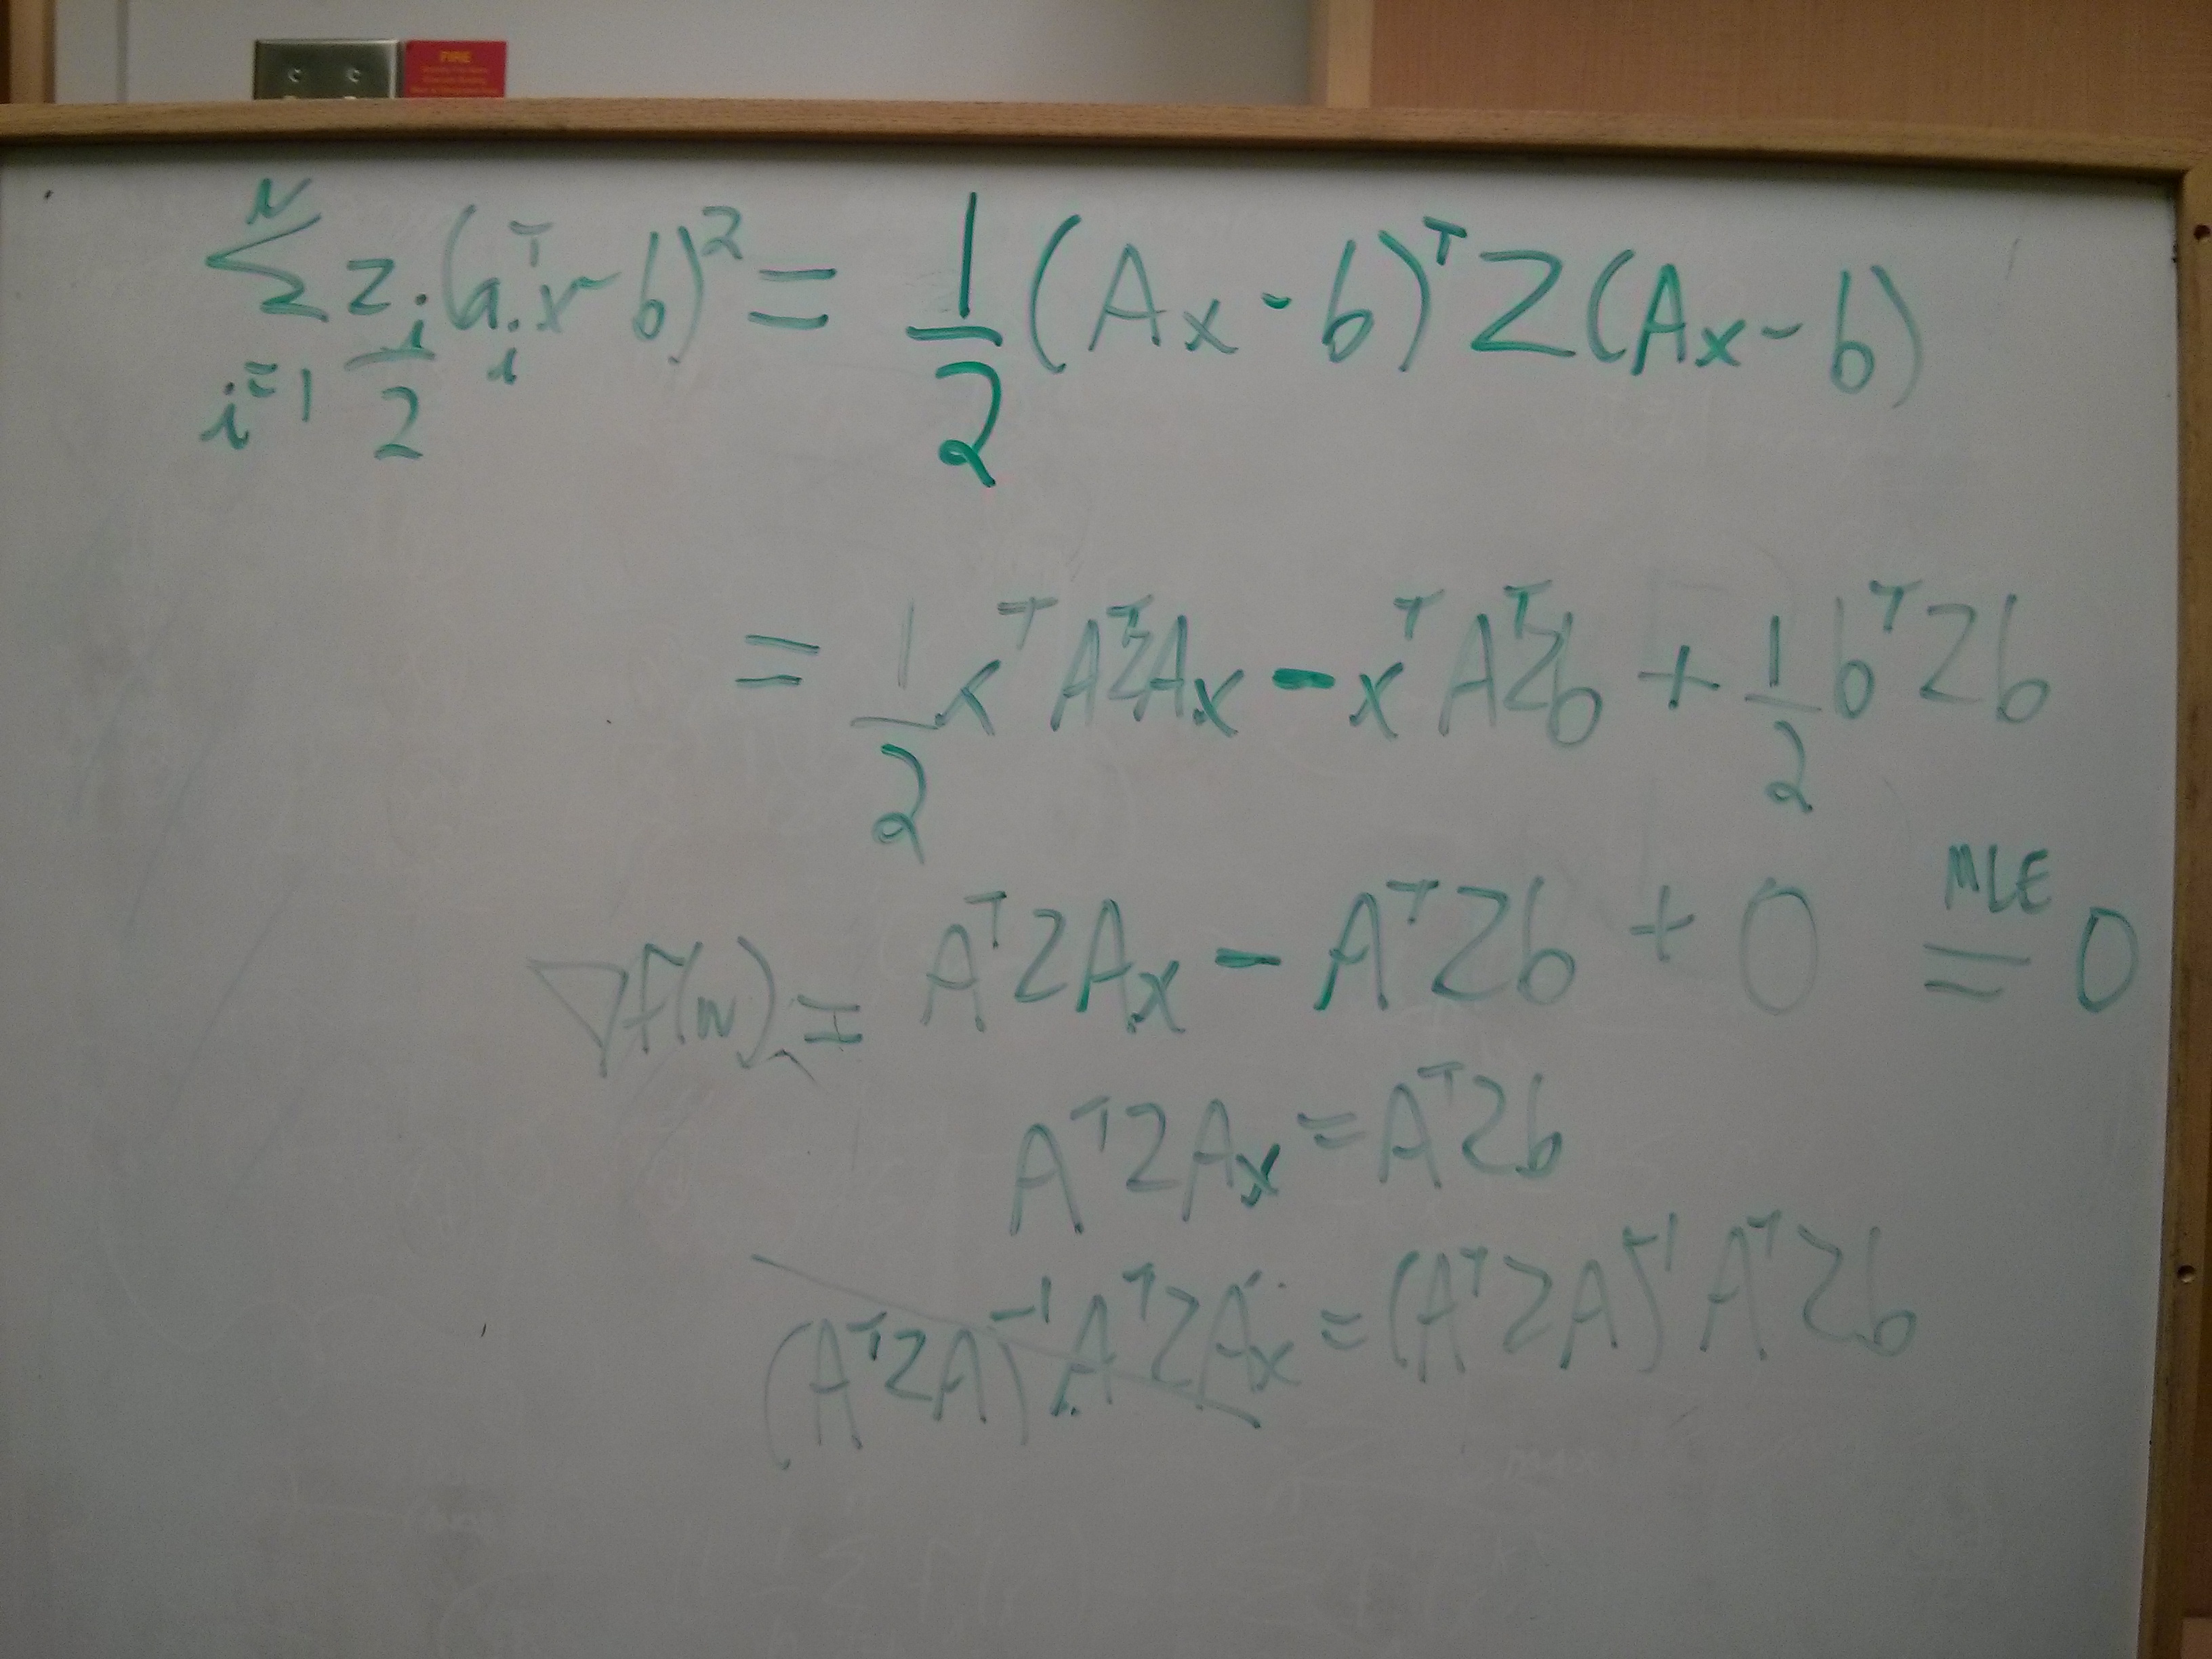 FIRE
∑_{i=1}^{N} z_i/2 (a_i^T x - b)^2 = 1/2 (Ax - b)^T Z (Ax - b)
= 1/2 x^T A^T Z A x - x^T A^T Z b + 1/2 b^T Z b
∇f(w) = A^T Z A x - A^T Z b + 0 =^{MLE} 0
A^T Z A x = A^T Z b
(A^T Z A)^{-1} A^T Z A x = (A^T Z A)^{-1} A^T Z b